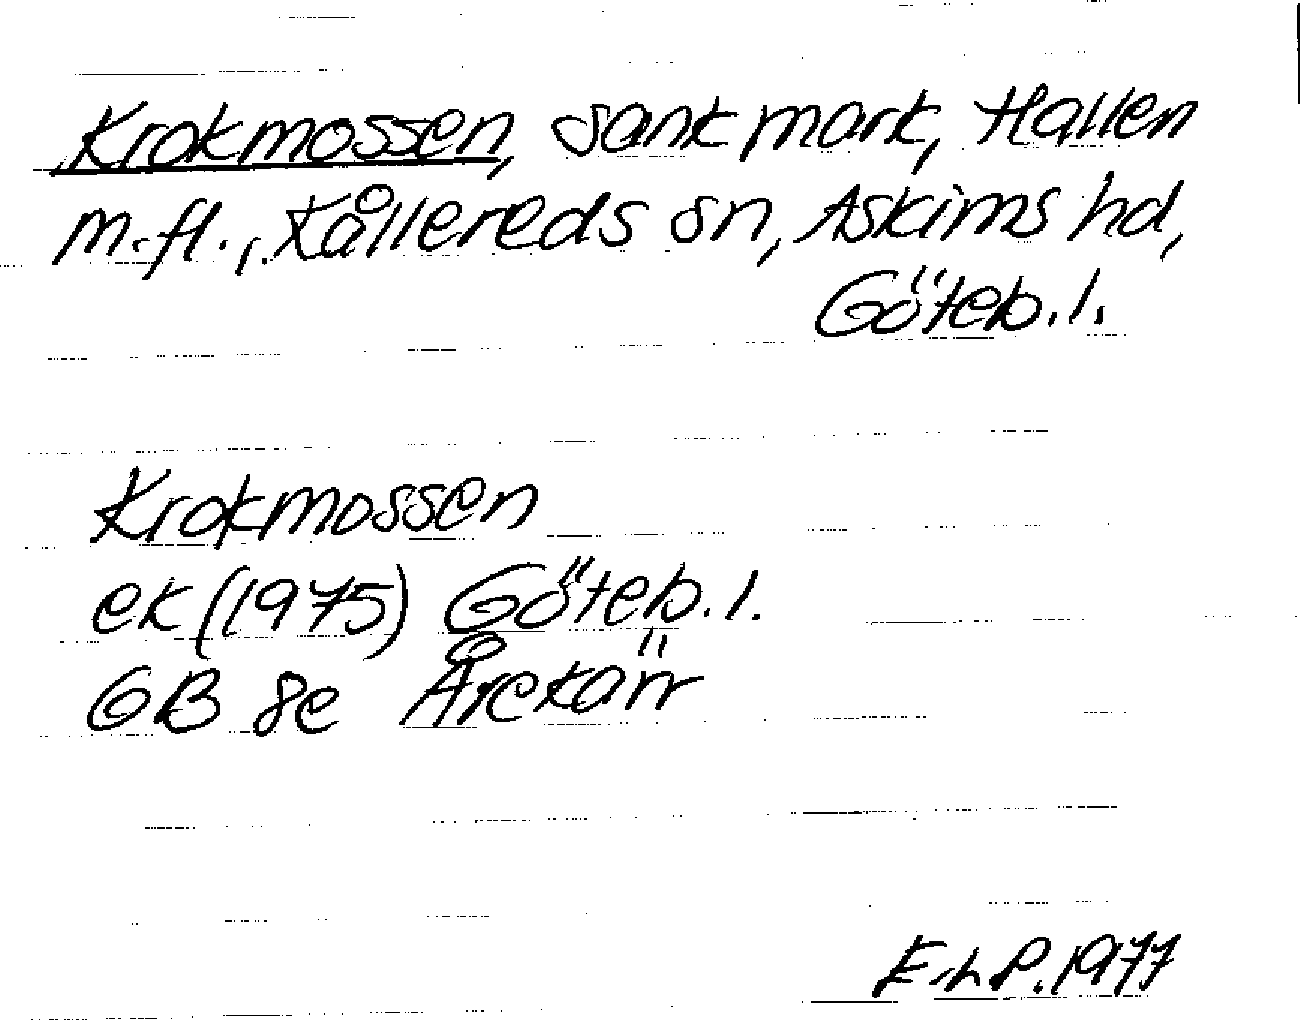 Krokmossen, sankmark, Hallen
m.fl., Kållereds sn, Askims hd,
Göteb. l.
Krokmossen
ek (1975) Göteb. l.
GB 8e Årekärr
E-LP. 1977